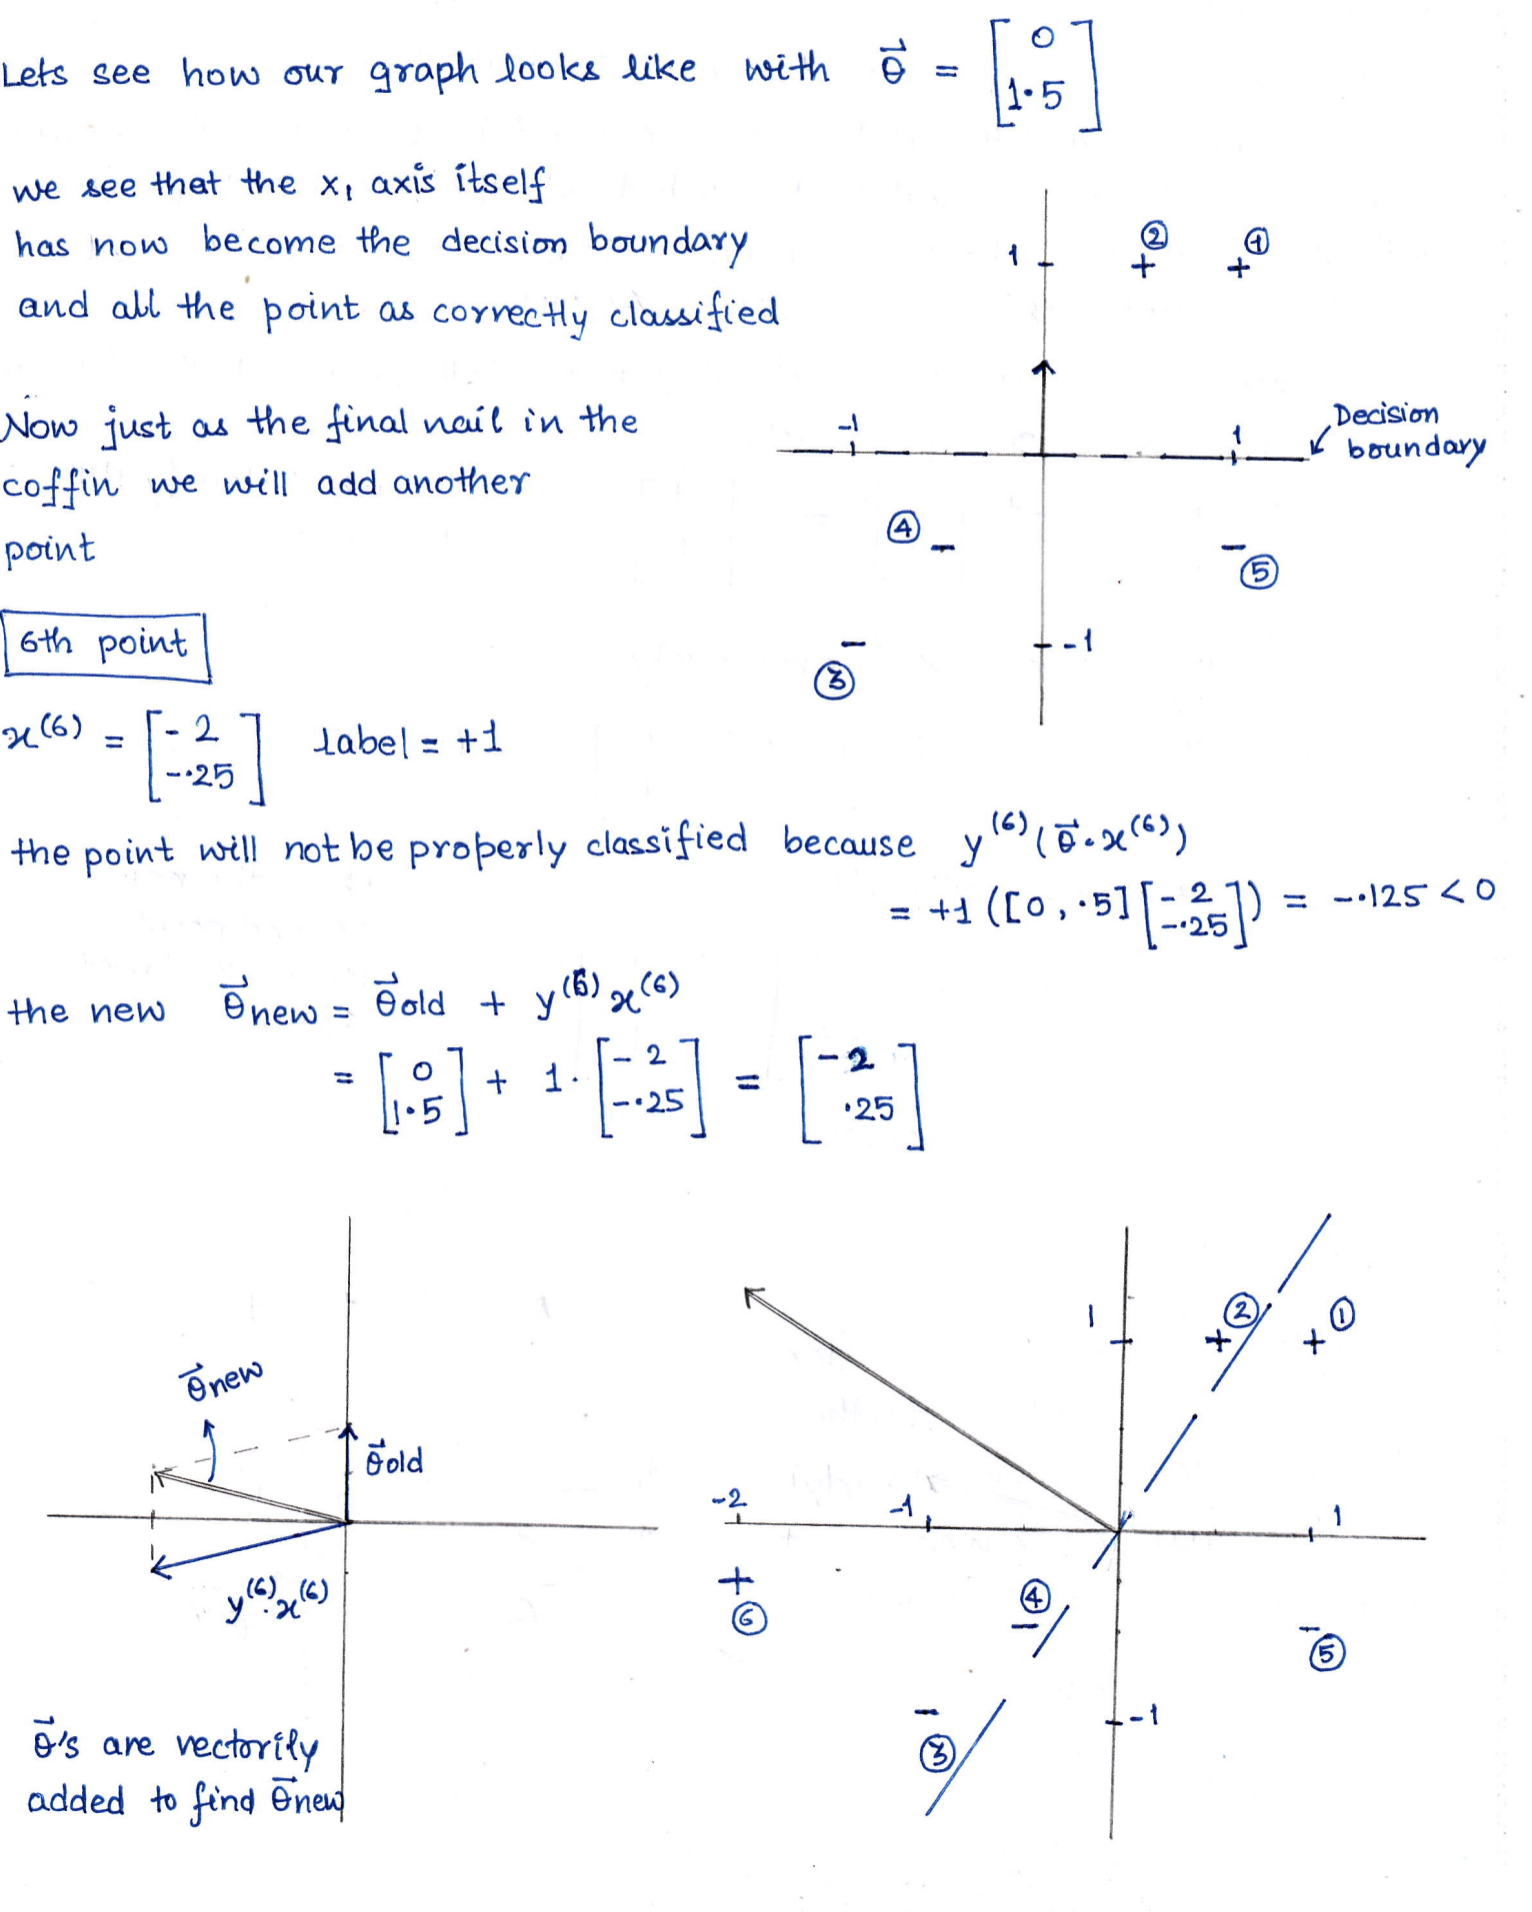 Lets see how our graph looks like with θ⃗ = [0 1.5]
we see that the x₁ axis itself
has now become the decision boundary
and all the point as correctly classified
1 ② + ① +
Now just as the final nail in the
coffin we will add another
point
-1 1
Decision
boundary
④ - - ⑤
- ③ -1
6th point
x⁽⁶⁾ = [-2 -.25] label = +1
the point will not be properly classified because y⁽⁶⁾(θ⃗.x⁽⁶⁾)
= +1 ([0, .5][-2 -.25]) = -.125 < 0
the new θ⃗new = θ⃗old + y⁽⁶⁾x⁽⁶⁾
= [0 1.5] + 1. [-2 -.25] = [-2 .25]
θ⃗new
θ⃗old
y⁽⁶⁾.x⁽⁶⁾
θ⃗'s are vectorily
added to find θ⃗new
1 ② + ① +
-2 -1 1
+ ⑥ ④ - - ⑤
- ③ -1